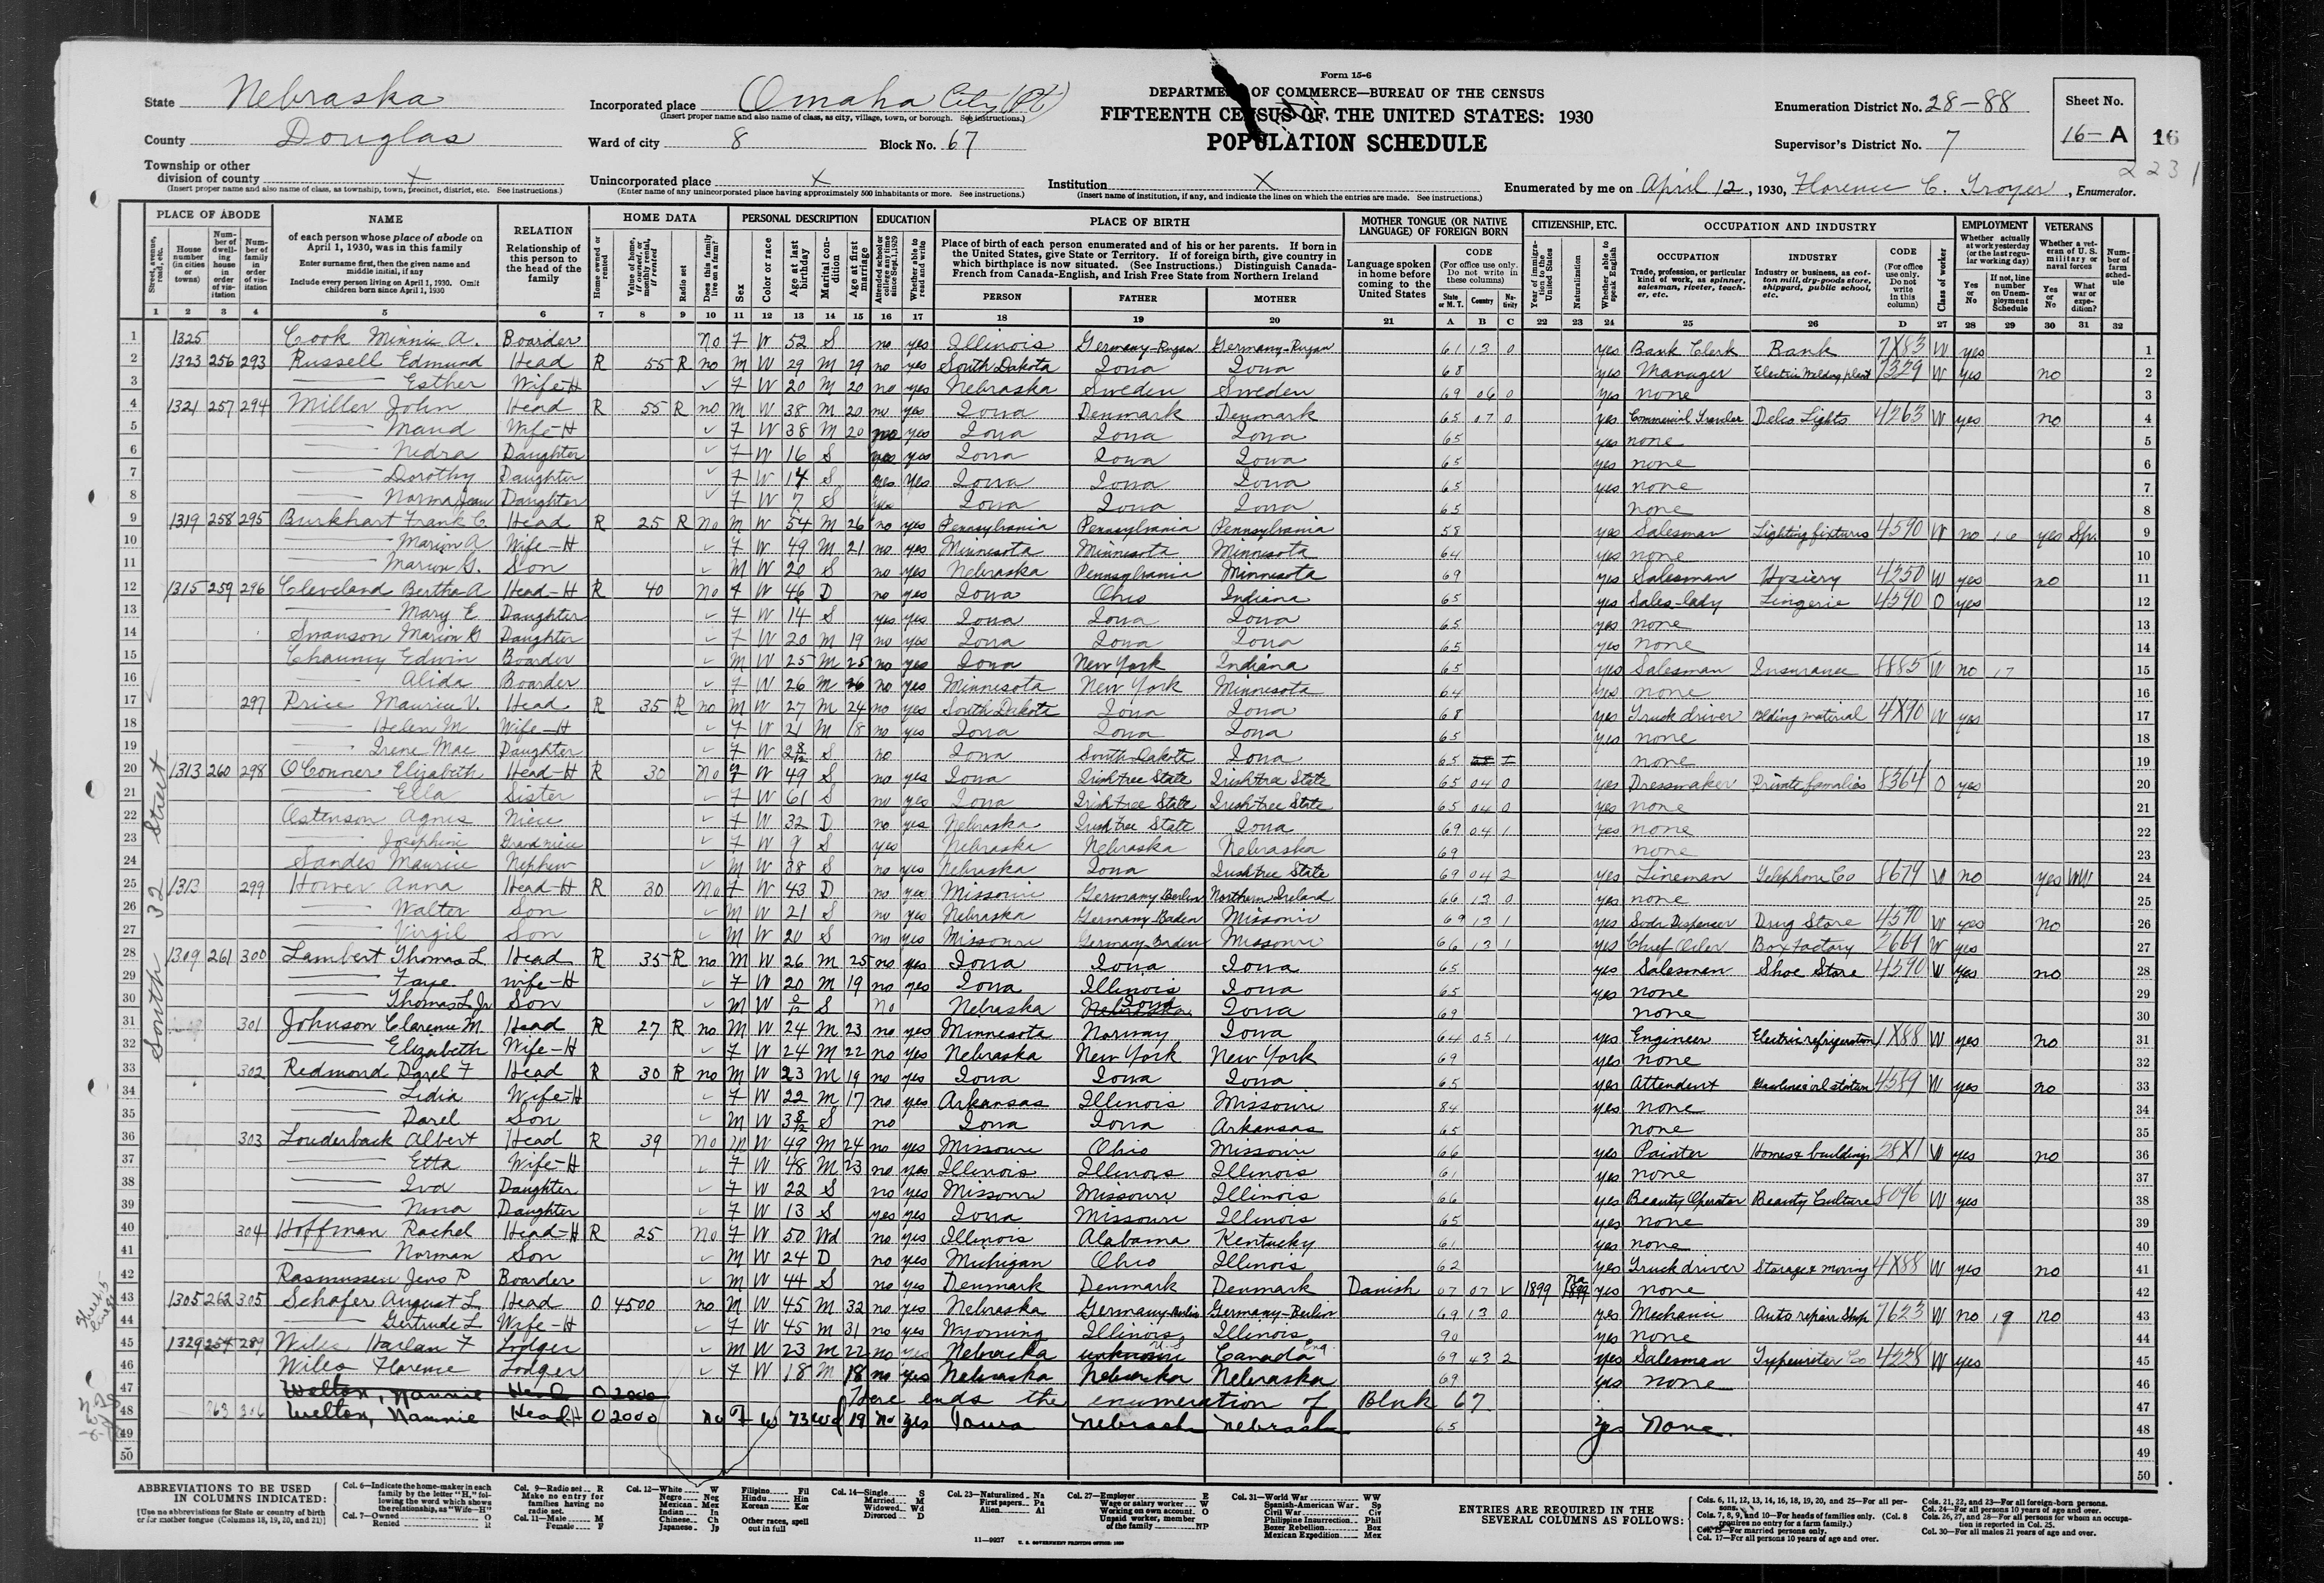 Form 15-6
DEPARTMENT OF COMMERCE—BUREAU OF THE CENSUS
FIFTEENTH CENSUS OF THE UNITED STATES: 1930
POPULATION SCHEDULE
State Nebraska
County Douglas
Township or other division of county X
(Insert proper name and also name of class, as township, town, precinct, district, etc. See instructions.)
Incorporated place Omaha City (Pt)
(Insert proper name and also name of class, as city, village, town, or borough. See instructions.)
Ward of city 8 Block No. 67
Unincorporated place X
(Enter name of any unincorporated place having approximately 500 inhabitants or more. See instructions.)
Institution X
(Insert name of institution, if any, and indicate the lines on which the entries are made. See instructions.)
Enumeration District No. 28-88
Supervisor's District No. 7
Sheet No. 16-A
16
2231
Enumerated by me on April 12, 1930, Florence C. Troyer, Enumerator.
PLACE OF ABODE NAME RELATION HOME DATA PERSONAL DESCRIPTION EDUCATION PLACE OF BIRTH MOTHER TONGUE (OR NATIVE LANGUAGE) OF FOREIGN BORN CITIZENSHIP, ETC. OCCUPATION AND INDUSTRY EMPLOYMENT VETERANS
South 32 Street
1 1325 Cook Minnie A. Boarder No F W 52 S no yes Illinois Germany-Rugan Germany-Rugan 61 13 0 yes Bank Clerk Bank 7X83 W yes 1
2 1323 256 293 Russell Edmund Head R 55 R no M W 29 M 29 no yes South Dakota Iowa Iowa 68 yes Manager Electric Welding plant 7329 W yes no 2
3 Esther Wife-H F W 20 M 20 no yes Nebraska Sweden Sweden 69 06 0 yes none 3
4 1321 257 294 Miller John Head R 55 R no M W 38 M 20 no yes Iowa Denmark Denmark 65 07 0 yes Commercial Traveler Delco Lights 4263 W yes no 4
5 Maud Wife-H F W 38 M 20 no yes Iowa Iowa Iowa 65 yes none 5
6 Nedra Daughter F W 16 S yes yes Iowa Iowa Iowa 65 yes none 6
7 Dorothy Daughter F W 14 S yes yes Iowa Iowa Iowa 65 yes none 7
8 Norma Jean Daughter F W 7 S yes Iowa Iowa Iowa 65 none 8
9 1319 258 295 Burkhart Frank C Head R 25 R No M W 54 M 26 no yes Pennsylvania Pennsylvania Pennsylvania 58 yes Salesman Lighting fixtures 4590 W no 16 yes Sp. 9
10 Marion A Wife-H F W 49 M 21 no yes Minnesota Minnesota Minnesota 64 yes none 10
11 Marion G. Son M W 20 S no yes Nebraska Pennsylvania Minnesota 69 yes Salesman Hosiery 4350 W yes no 11
12 1315 259 296 Cleveland Bertha A Head-H R 40 No F W 46 D no yes Iowa Ohio Indiana 65 yes Sales-lady Lingerie 4590 O yes 12
13 Mary E Daughter F W 14 S yes yes Iowa Iowa Iowa 65 yes none 13
14 Swanson Marion G Daughter F W 20 M 19 no yes Iowa Iowa Iowa 65 yes none 14
15 Chauncy Edwin Boarder M W 25 M 25 no yes Iowa New York Indiana 65 yes Salesman Insurance 8885 W no 17 15
16 Alida Boarder F W 26 M 26 no yes Minnesota New York Minnesota 64 yes none 16
17 297 Price Maurice V. Head R 35 R no M W 27 M 24 no yes South Dakota Iowa Iowa 68 yes Truck driver Bldling material 4X90 W yes 17
18 Helen M Wife-H F W 21 M 18 no yes Iowa Iowa Iowa 65 yes none 18
19 Irene Mae Daughter F W 2 8/12 S no Iowa South Dakota Iowa 65 none 19
20 1313 260 298 O'Connor Elizabeth Head-H R 30 No F W 49 S no yes Iowa Irish Free State Irish Free State 65 04 0 yes Dressmaker Private families 8364 O yes 20
21 Ella Sister F W 61 S no yes Iowa Irish Free State Irish Free State 65 04 0 yes none 21
22 Ostenson Agnes Niece F W 32 D no yes Nebraska Irish Free State Iowa 69 04 1 yes none 22
23 Josephine Grand niece F W 9 S yes Nebraska Nebraska Nebraska 69 none 23
24 Sandes Maurice Nephew M W 38 S no yes Nebraska Iowa Irish Free State 69 04 2 yes Lineman Telephone Co 8679 W no yes WW 24
25 1313 299 Hower Anna Head-H R 30 No F W 43 D no yes Missouri Germany Berlin Northern Ireland 66 13 0 yes none 25
26 Walter Son M W 21 S no yes Nebraska Germany Baden Missouri 69 13 1 yes Soda Dispenser Drug Store 4590 W yes No 26
27 Virgil Son M W 20 S no yes Missouri Germany Baden Missouri 66 13 1 yes Chief Oiler Box Factory 2669 W yes 27
28 1309 261 300 Lambert Thomas L Head R 35 R no M W 26 M 25 no yes Iowa Iowa Iowa 65 yes Salesman Shoe Store 4590 W yes no 28
29 Faye wife-H F W 20 M 19 no yes Iowa Illinois Iowa 65 yes none 29
30 Thomas L. Jr Son M W S No Nebraska Iowa Iowa 69 none 30
31 301 Johnson Clarence M. Head R 27 R no M W 24 M 23 no yes Minnesota Norway Iowa 64 05 1 yes Engineer Electric refrigeration 1X88 W yes no 31
32 Elizabeth Wife-H F W 24 M 22 no yes Nebraska New York New York 69 yes none 32
33 302 Redmond Darel F Head R 30 R no M W 23 M 19 no yes Iowa Iowa Iowa 65 yes Attendent Gasoline oil station 4589 W yes no 33
34 Lidia Wife-H F W 22 M 17 no yes Arkansas Illinois Missouri 84 yes none 34
35 Darel Son M W 3 8/12 S no Iowa Iowa Arkansas 65 none 35
36 303 Louderback Albert Head R 39 No M W 49 M 24 no yes Missouri Ohio Missouri 66 yes Painter Homes & buildings 28X1 W yes no 36
37 Etta Wife-H F W 48 M 23 no yes Illinois Illinois Illinois 61 yes none 37
38 Iva Daughter F W 22 S no yes Missouri Missouri Illinois 66 yes Beauty Operator Beauty Culture 8096 W yes 38
39 Nina Daughter F W 13 S yes yes Iowa Missouri Illinois 65 yes none 39
40 304 Hoffman Rachel Head-H R 25 No F W 50 Wd no yes Illinois Alabama Kentucky 61 yes none 40
41 Norman Son M W 24 D no yes Michigan Ohio Illinois 62 yes Truck driver Storage & moving 4X88 W yes no 41
42 Rasmussen Jens P Boarder M W 44 S no yes Denmark Denmark Denmark Danish 07 07 V 1899 Na yes none 42
43 1305 262 305 Schafer August L Head O 4500 no M W 45 M 32 no yes Nebraska Germany-Berlin Germany-Berlin 69 13 0 yes Mechanic Auto repair Shop 7623 W no 19 no 43
44 Gertrude L Wife-H F W 45 M 31 no yes Wyoming Illinois Illinois 90 yes none 44
45 1329 254 289 Wiles Harlan F Lodger M W 23 M 22 no yes Nebraska unknown U S Canada Eng. 69 43 2 yes Salesman Typewriter Co 4228 W yes 45
46 Wiles Florence Lodger F W 18 M 18 no yes Nebraska Nebraska Nebraska 69 yes none 46
47 Welton, Nannie Head O 2000 Here ends the enumeration of Block 67. 47
48 263 306 Welton, Nannie Head-H O 2000 no F W 73 Wd 19 No yes Iowa Nebraska Nebraska 65 yes None. 48
49 49
50 50
ABBREVIATIONS TO BE USED IN COLUMNS INDICATED:
[Use no abbreviations for State or country of birth or for mother tongue (Columns 18, 19, 20, and 21)]
Col. 6—Indicate the home-maker in each family by the letter "H," following the word which shows the relationship, as "Wife—H"
Col. 7—Owned O Rented R
Col. 9—Radio set R Make no entry for families having no radio set.
Col. 11—Male M Female F
Col. 12—White W Negro Neg Mexican Mex Indian In Chinese Ch Japanese Jp Filipino Fil Hindu Hin Korean Kor Other races, spell out in full
Col. 14—Single S Married M Widowed Wd Divorced D
Col. 23—Naturalized Na First papers Pa Alien Al
Col. 27—Employer E Wage or salary worker W Working on own account O Unpaid worker, member of the family NP
Col. 31—World War WW Spanish-American War Sp Civil War Civ Philippine Insurrection Phil Boxer Rebellion Box Mexican Expedition Mex
ENTRIES ARE REQUIRED IN THE SEVERAL COLUMNS AS FOLLOWS:
Cols. 6, 11, 12, 13, 14, 16, 18, 19, 20, and 25—For all persons.
Cols. 7, 8, 9, and 10—For heads of families only. (Col. 8 requires no entry for a farm family.)
Col. 15—For married persons only.
Col. 17—For all persons 10 years of age and over.
Cols. 21, 22, and 23—For all foreign-born persons.
Col. 24—For all persons 10 years of age and over.
Cols. 26, 27, and 28—For all persons for whom an occupation is reported in Col. 25.
Col. 30—For all males 21 years of age and over.
11—9927 U. S. GOVERNMENT PRINTING OFFICE: 1930